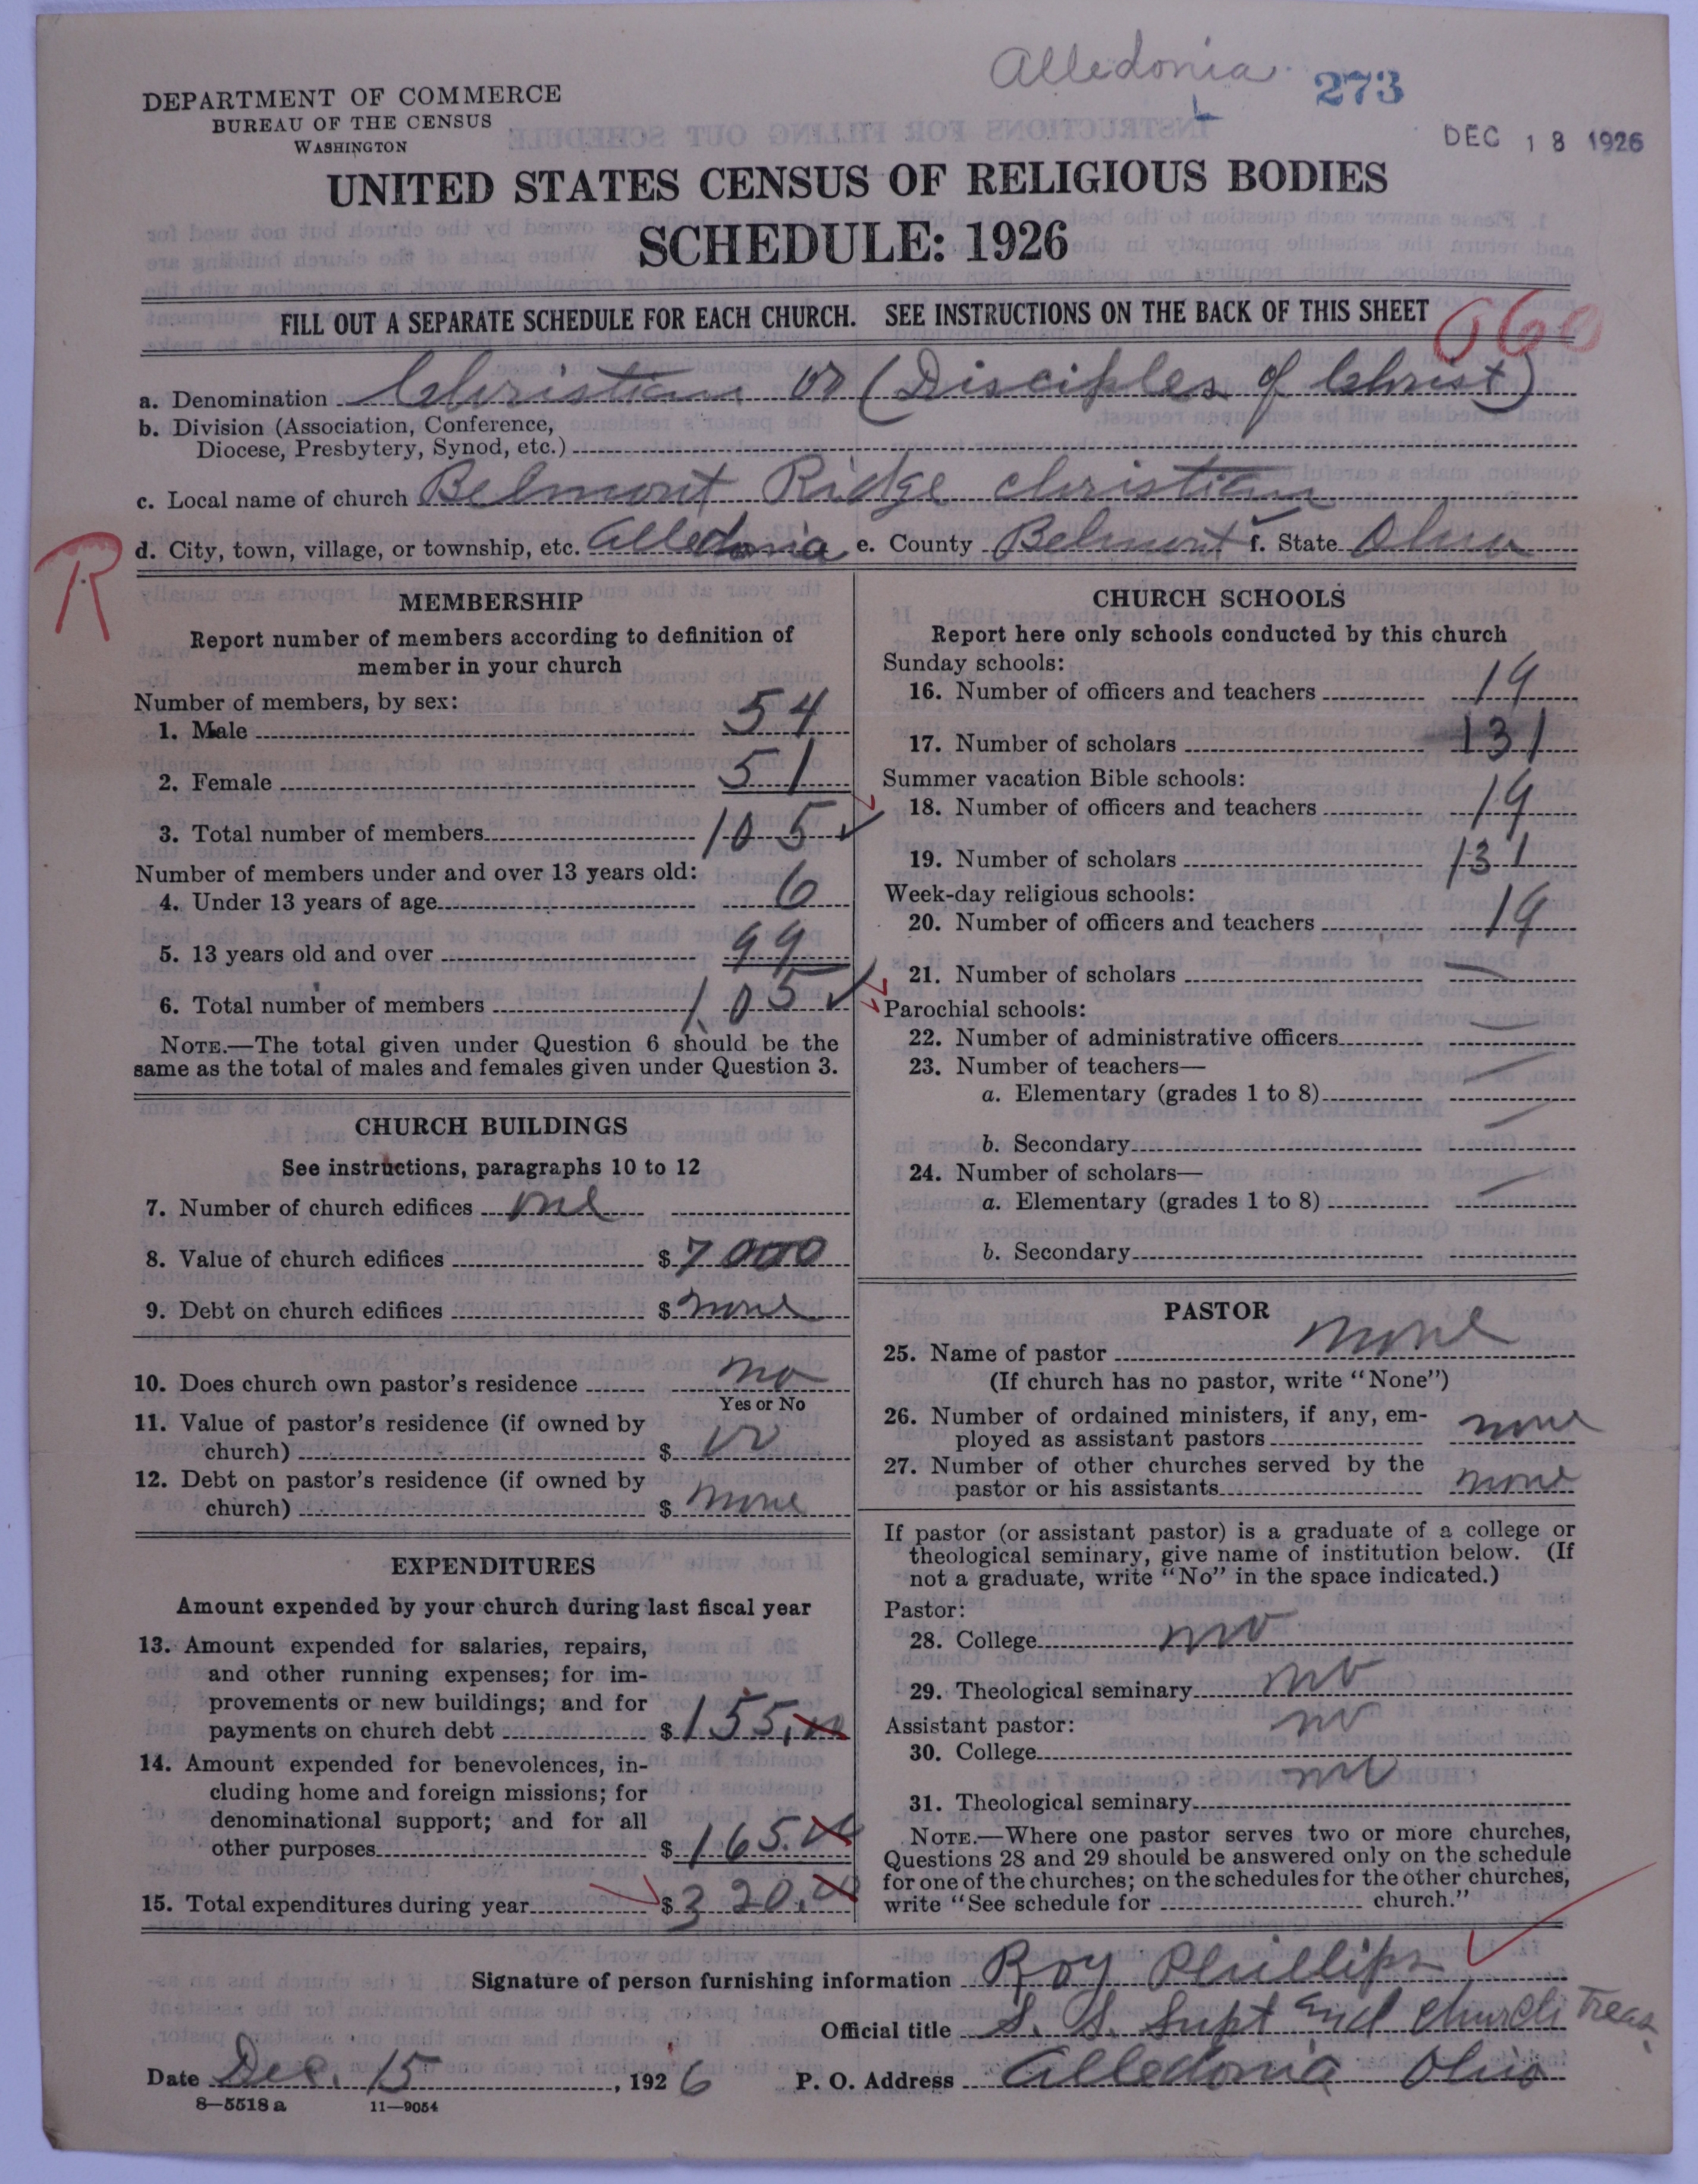 Alledonia
273
DEC 18 1926
DEPARTMENT OF COMMERCE
BUREAU OF THE CENSUS
WASHINGTON
UNITED STATES CENSUS OF RELIGIOUS BODIES
SCHEDULE: 1926
FILL OUT A SEPARATE SCHEDULE FOR EACH CHURCH. SEE INSTRUCTIONS ON THE BACK OF THIS SHEET
660
a. Denomination Christian or (Disciples of Christ)
b. Division (Association, Conference,
Diocese, Presbytery, Synod, etc.)
c. Local name of church Belmont Ridge christian
d. City, town, village, or township, etc. Alledonia e. County Belmont f. State Ohio
R
MEMBERSHIP
Report number of members according to definition of
member in your church
Number of members, by sex:
1. Male 54
2. Female 51
3. Total number of members 105
Number of members under and over 13 years old:
4. Under 13 years of age 6
5. 13 years old and over 99
6. Total number of members 105
NOTE.—The total given under Question 6 should be the
same as the total of males and females given under Question 3.
CHURCH BUILDINGS
See instructions, paragraphs 10 to 12
7. Number of church edifices one
8. Value of church edifices $ 7000
9. Debt on church edifices $ none
10. Does church own pastor's residence no
Yes or No
11. Value of pastor's residence (if owned by
church) $
12. Debt on pastor's residence (if owned by
church) $ none
EXPENDITURES
Amount expended by your church during last fiscal year
13. Amount expended for salaries, repairs,
and other running expenses; for im-
provements or new buildings; and for
payments on church debt $ 155.00
14. Amount expended for benevolences, in-
cluding home and foreign missions; for
denominational support; and for all
other purposes $ 165.00
15. Total expenditures during year $ 320.00
CHURCH SCHOOLS
Report here only schools conducted by this church
Sunday schools:
16. Number of officers and teachers 19
17. Number of scholars 131
Summer vacation Bible schools:
18. Number of officers and teachers 19
19. Number of scholars 131
Week-day religious schools:
20. Number of officers and teachers 19
21. Number of scholars —
Parochial schools:
22. Number of administrative officers —
23. Number of teachers—
a. Elementary (grades 1 to 8) —
b. Secondary —
24. Number of scholars—
a. Elementary (grades 1 to 8) —
b. Secondary
PASTOR
25. Name of pastor none
(If church has no pastor, write "None")
26. Number of ordained ministers, if any, em-
ployed as assistant pastors none
27. Number of other churches served by the
pastor or his assistants none
If pastor (or assistant pastor) is a graduate of a college or
theological seminary, give name of institution below. (If
not a graduate, write "No" in the space indicated.)
Pastor:
28. College no
29. Theological seminary no
Assistant pastor:
30. College no
31. Theological seminary no
NOTE.—Where one pastor serves two or more churches,
Questions 28 and 29 should be answered only on the schedule
for one of the churches; on the schedules for the other churches,
write "See schedule for church."
Signature of person furnishing information Roy Phillips
Official title S. S. Supt and Church Treas.
Date Dec. 15, 1926 P. O. Address Alledonia Ohio
8—5518a 11—9054